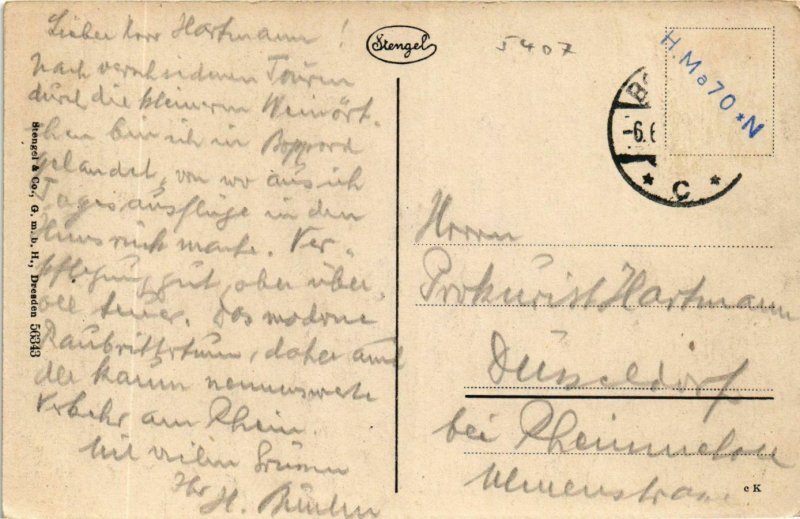 Lieber Herr Hartmann!
Nach verschiedenen Touren
durch die kleineren Weinört-
chen bin ich in Boppard
gelandet, von wo aus ich
Tagesausflüge in den
Hunsrück mache. Ver-
pflegung gut, aber über-
all teuer. Das moderne
Raubrittertum, daher auch
der kaum nennenswerte
Verkehr am Rhein.
Mit vielen Grüssen
Ihr
H.
Stengel & Co., G. m. b. H., Dresden 56343
Stengel
5407
H.Ma70*N
-6.6
* C *
Herrn
Prokurist Hartmann
Düsseldorf
bei
c K